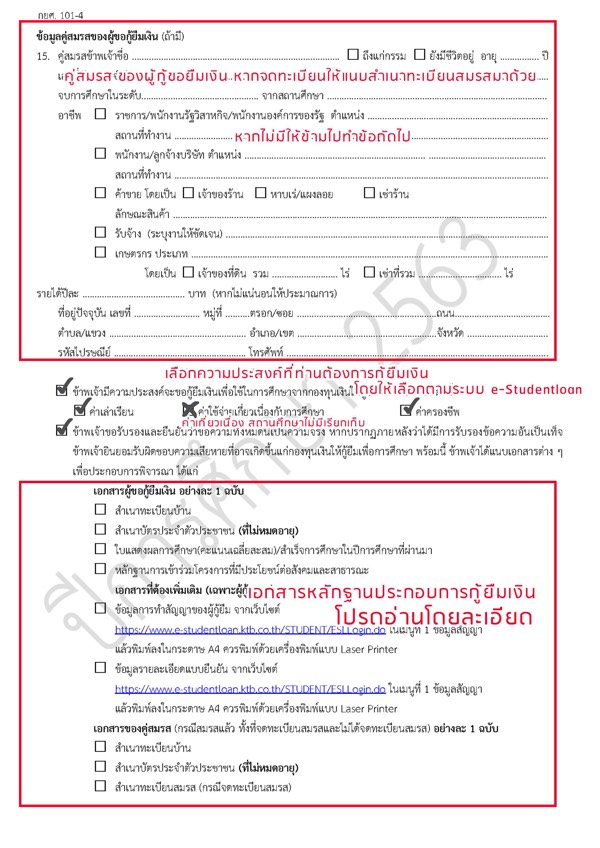 กยศ. 101-4
ข้อมูลคู่สมรสของผู้ขอกู้ยืมเงิน (ถ้ามี)
15. คู่สมรสข้าพเจ้าชื่อ ........ ☐ ถึงแก่กรรม ☐ ยังมีชีวิตอยู่ อายุ ........ ปี
คู่สมรสของผู้กู้ขอยืมเงิน หากจดทะเบียนให้แนบสำเนาทะเบียนสมรสมาด้วย
จบการศึกษาในระดับ........ จากสถานศึกษา ........
อาชีพ ☐ ราชการ/พนักงานรัฐวิสาหกิจ/พนักงานองค์การของรัฐ ตำแหน่ง ........
สถานที่ทำงาน ........ หากไม่มีให้ข้ามไปทำข้อถัดไป
☐ พนักงาน/ลูกจ้างบริษัท ตำแหน่ง ........
สถานที่ทำงาน ........
☐ ค้าขาย โดยเป็น ☐ เจ้าของร้าน ☐ หาบเร่/แผงลอย ☐ เช่าร้าน
ลักษณะสินค้า ........
☐ รับจ้าง (ระบุงานให้ชัดเจน) ........
☐ เกษตรกร ประเภท ........
โดยเป็น ☐ เจ้าของที่ดิน รวม ........ ไร่ ☐ เช่าที่รวม ........ ไร่
รายได้ปีละ ........ บาท (หากไม่แน่นอนให้ประมาณการ)
ที่อยู่ปัจจุบัน เลขที่ ........ หมู่ที่ ........ตรอก/ซอย ........ถนน........
ตำบล/แขวง ........ อำเภอ/เขต ........จังหวัด ........
รหัสไปรษณีย์ ........ โทรศัพท์ ........
เลือกความประสงค์ที่ท่านต้องการกู้ยืมเงิน
ข้าพเจ้ามีความประสงค์จะขอกู้ยืมเงินเพื่อใช้ในการศึกษาจากกองทุนเงินให้ โดยให้เลือกตามระบบ e-Studentloan
ค่าเล่าเรียน ค่าใช้จ่ายเกี่ยวเนื่องกับการศึกษา ค่าครองชีพ
ค่าเกี่ยวเนื่อง สถานศึกษาไม่มีเรียกเก็บ
ข้าพเจ้าขอรับรองและยืนยันว่าข้อความทั้งหมดนี้เป็นความจริง หากปรากฏภายหลังว่าได้มีการรับรองข้อความอันเป็นเท็จ
ข้าพเจ้ายินยอมรับผิดชอบความเสียหายที่อาจเกิดขึ้นแก่กองทุนเงินให้กู้ยืมเพื่อการศึกษา พร้อมนี้ ข้าพเจ้าได้แนบเอกสารต่าง ๆ
เพื่อประกอบการพิจารณา ได้แก่
เอกสารผู้ขอกู้ยืมเงิน อย่างละ 1 ฉบับ
☐ สำเนาทะเบียนบ้าน
☐ สำเนาบัตรประจำตัวประชาชน (ที่ไม่หมดอายุ)
☐ ใบแสดงผลการศึกษา(คะแนนเฉลี่ยสะสม)/สำเร็จการศึกษาในปีการศึกษาที่ผ่านมา
☐ หลักฐานการเข้าร่วมโครงการที่มีประโยชน์ต่อสังคมและสาธารณะ
เอกสารที่ต้องเพิ่มเติม (เฉพาะผู้กู้ เอกสารหลักฐานประกอบการกู้ยืมเงิน
☐ ข้อมูลการทำสัญญาของผู้กู้ยืม จากเว็บไซต์ โปรดอ่านโดยละเอียด
https://www.e-studentloan.ktb.co.th/STUDENT/ESLLogin.do ในเมนูที่ 1 ข้อมูลสัญญา
แล้วพิมพ์ลงในกระดาษ A4 ควรพิมพ์ด้วยเครื่องพิมพ์แบบ Laser Printer
☐ ข้อมูลรายละเอียดแบบยืนยัน จากเว็บไซต์
https://www.e-studentloan.ktb.co.th/STUDENT/ESLLogin.do ในเมนูที่ 1 ข้อมูลสัญญา
แล้วพิมพ์ลงในกระดาษ A4 ควรพิมพ์ด้วยเครื่องพิมพ์แบบ Laser Printer
เอกสารของคู่สมรส (กรณีสมรสแล้ว ทั้งที่จดทะเบียนสมรสและไม่ได้จดทะเบียนสมรส) อย่างละ 1 ฉบับ
☐ สำเนาทะเบียนบ้าน
☐ สำเนาบัตรประจำตัวประชาชน (ที่ไม่หมดอายุ)
☐ สำเนาทะเบียนสมรส (กรณีจดทะเบียนสมรส)
ปีการศึกษา 2563